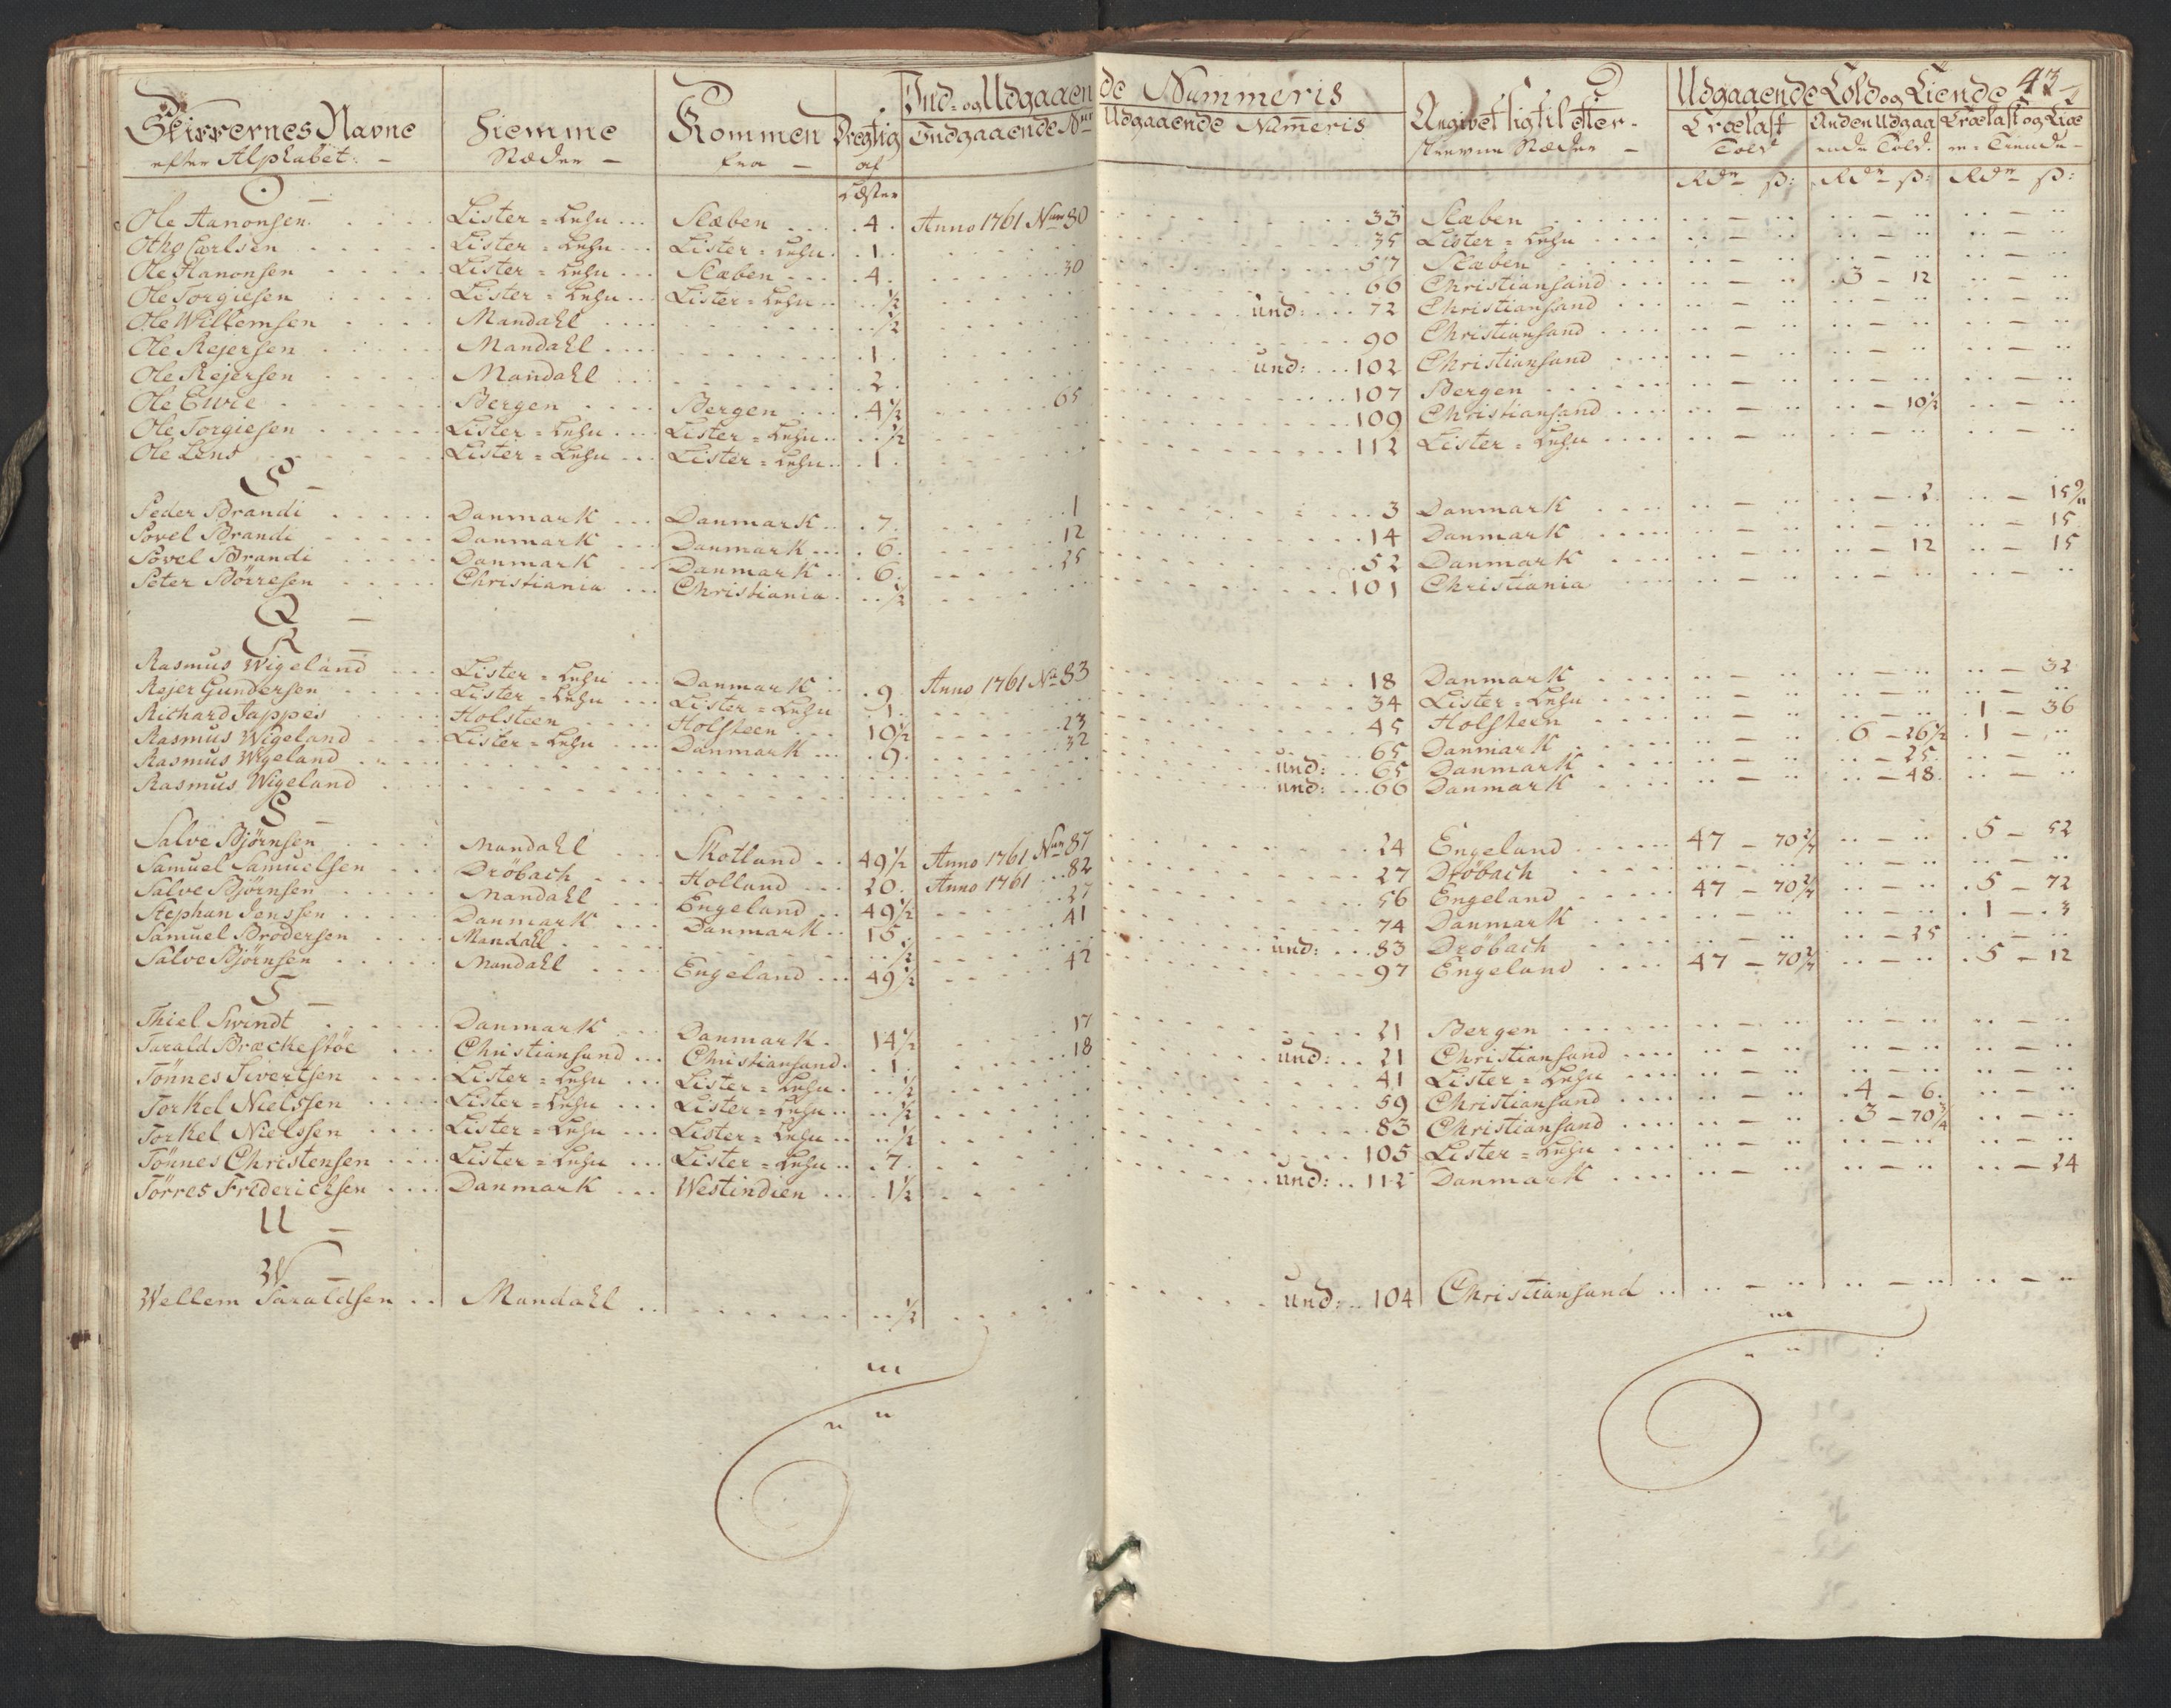 43
Ind- og Udgaaende Nummeris
Udgaaende Told og Tiende
Skippernes Navne efter Alphabet:
Hiemme Stæder
Kommen fra
Drægtig af Læster
Indgaaende Nur
Udgaaende Numeris
Angivet sig til efterskrevne Stæder
Trælast Told
Anden Udgaaende Told
Trælast og Tiende
Rdr ß: Rdr ß: Rdr ß:
O
Ole Aanonsen Lister=Lehn Slæben 4 Anno 1761 Nur 80 33 Slæben
Otho Carlsen Lister=Lehn Lister=Lehn 1 35 Lister=Lehn
Ole Aanonsen Lister=Lehn Slæben 4 30 57 Slæben
Ole Torgiesen Lister=Lehn Lister=Lehn ½ 66 Christiansand 3 - 12
Ole Willemsen Mandahl ½ und: 72 Christiansand
Ole Rejersen Mandahl 1 90 Christiansand
Ole Rejersen Mandahl 2 und: 102 Christiansand
Ole Ewre Bergen Bergen 4½ 65 107 Bergen
Ole Torgiesen Lister=Lehn Lister=Lehn ½ 109 Christiansand 10½
Ole Lend Lister=Lehn Lister=Lehn 1 112 Lister=Lehn
P
Peder Brandi Danmark Danmark 7 1 3 Danmark 2
Povel Brandi Danmark Danmark 6 12 14 Danmark 15
Povel Brandi Danmark Danmark 6 25 52 Danmark 12 15
Peter Börresen Christiania Christiania ½ 101 Christiania
Q
R
Rasmus Wigeland Lister=Lehn Danmark 9 Anno 1761 No 83 18 Danmark 32
Rejer Gundersen Lister=Lehn Lister=Lehn 1 34 Lister=Lehn
Richard Jappes Holsteen Holsteen 10½ 23 45 Holsteen 1 - 36
Rasmus Wigeland Lister=Lehn Danmark 9 32 65 Danmark 6 - 26½ 1
Rasmus Wigeland und: 65 Danmark 25
Rasmus Wigeland und: 66 Danmark 48
S
Salve Bjørnsen Mandahl Skotland 49½ Anno 1761 Nur 87 24 Engeland 47 - 70 2/7 5 - 52
Samuel Samuelsen Dröbach Holland 20 Anno 1761 82 27 Dröbach
Salve Bjørnsen Mandahl Engeland 49½ 27 56 Engeland 47 - 70 2/7 5 - 72
Stephan Jenssen Danmark Danmark 15 41 74 Danmark 1 - 3
Samuel Brodersen Mandahl ½ und: 83 Dröbach 25
Salve Bjørnsen Mandahl Engeland 49½ 42 97 Engeland 47 - 70 2/7 5 - 12
T
Thiel Swindt Danmark Danmark 14½ 17 21 Bergen
Tarald Bræckestöe Christiansand Christiansand 1 18 und: 21 Christiansand
Tönnes Sivertsen Lister=Lehn Lister=Lehn ½ 41 Lister=Lehn
Torkel Nielssen Lister=Lehn Lister=Lehn ½ 59 Christiansand 4 - 6
Torkel Nielssen Lister=Lehn Lister=Lehn ½ 83 Christiansand 3 - 70¾
Tönnes Christensen Lister=Lehn Lister=Lehn 7 105 Lister=Lehn
Törres Frederichsen Danmark Westindien 1½ und: 112 Danmark 24
U
W
Wellem Taraldsen Mandahl ½ und: 104 Christiansand